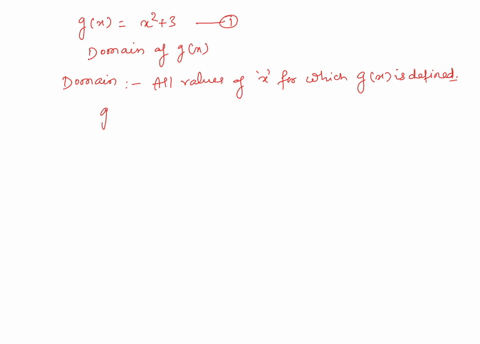 g(x) = x²+3 —— ①
Domain of g(x)
Domain :- All values of 'x' for which g(x) is defined.
g